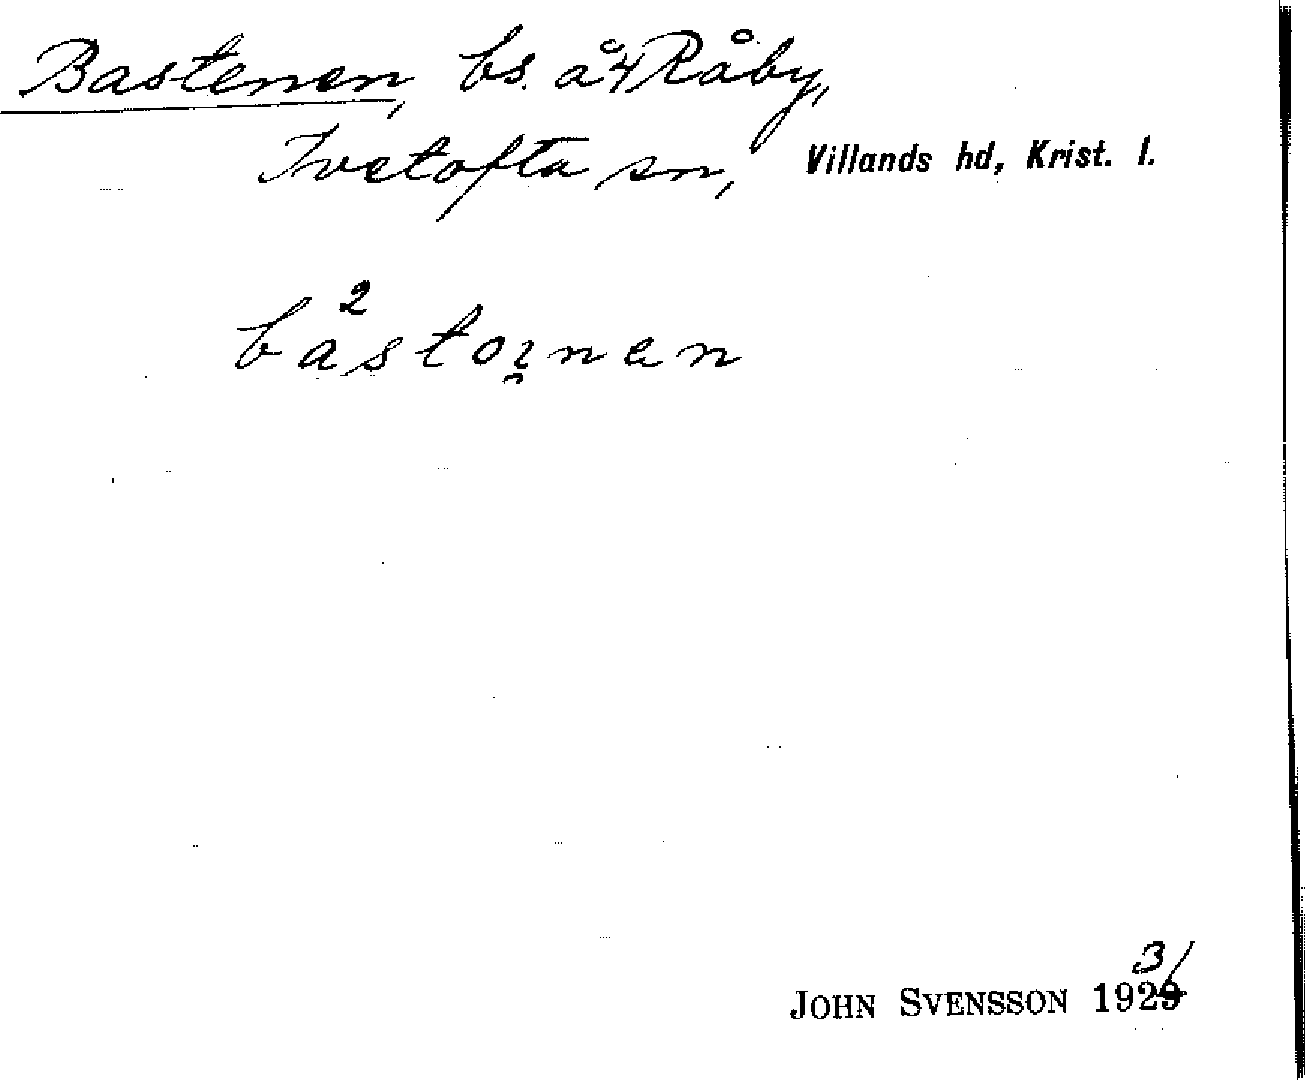 Bastenen, bs. å 4 Råby,
Ivetofta sn, Villands hd, Krist. l.
2
bastoı̯nen
3/
JOHN SVENSSON 1929